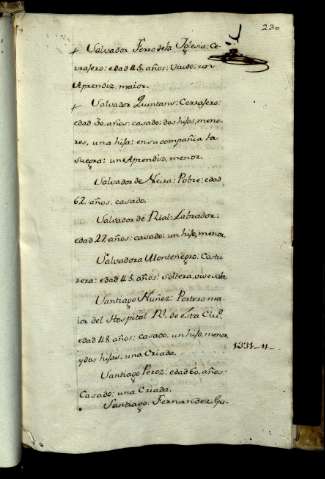 230
+ Salvador Ferro de la Yglesia: Ce-
rrajero: edad 48. años: Viudo: un
Aprendiz maior.
+ Salvador Quintans: Cerrajero:
edad 30. años: casado: dos hijas meno-
res, una hija: en su compañia la
suegra: un Aprendiz menor.
Salvador de Neira: Pobre: edad
62. años. casado.
Salvador de Rial: Labrador:
edad 22 años: casado: un hijo menor.
Salvadora Montenegro. Costu-
rera: edad 45. años: soltera, vive sola
Santiago Nuñez. Portero ma-
ior del Hospital Rl. de esta Ciud.
edad 48. años: casado, un hijo menor
y dos hijas, una Criada.
Santiago Perez: edad 60. años:
Casado: una Criada.
Santiago Fernandez